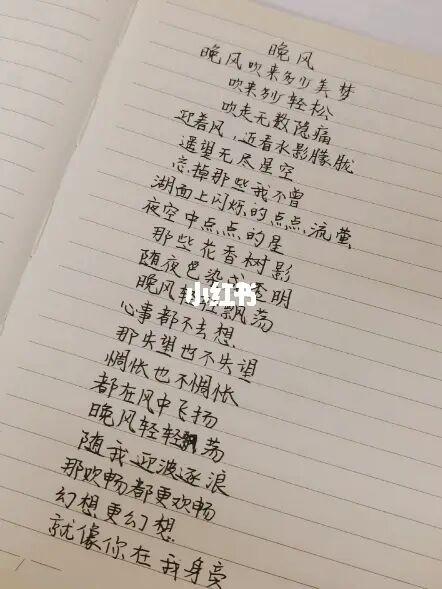 晚风
晚风吹来多少美梦
吹来多少轻松
吹走无数隐痛
迎着风，近看水影朦胧
遥望无尽星空
忘掉那些我不曾
湖面上闪烁的点点流萤
夜空中点点的星
那些花香树影
随夜色染成透明
晚风轻轻飘荡
小红书
心事都不去想
那失望也不失望
惆怅也不惆怅
都在风中飞扬
晚风轻轻飘荡
随我迎波逐浪
那欢畅都更欢畅
幻想更幻想
就像你在我身旁